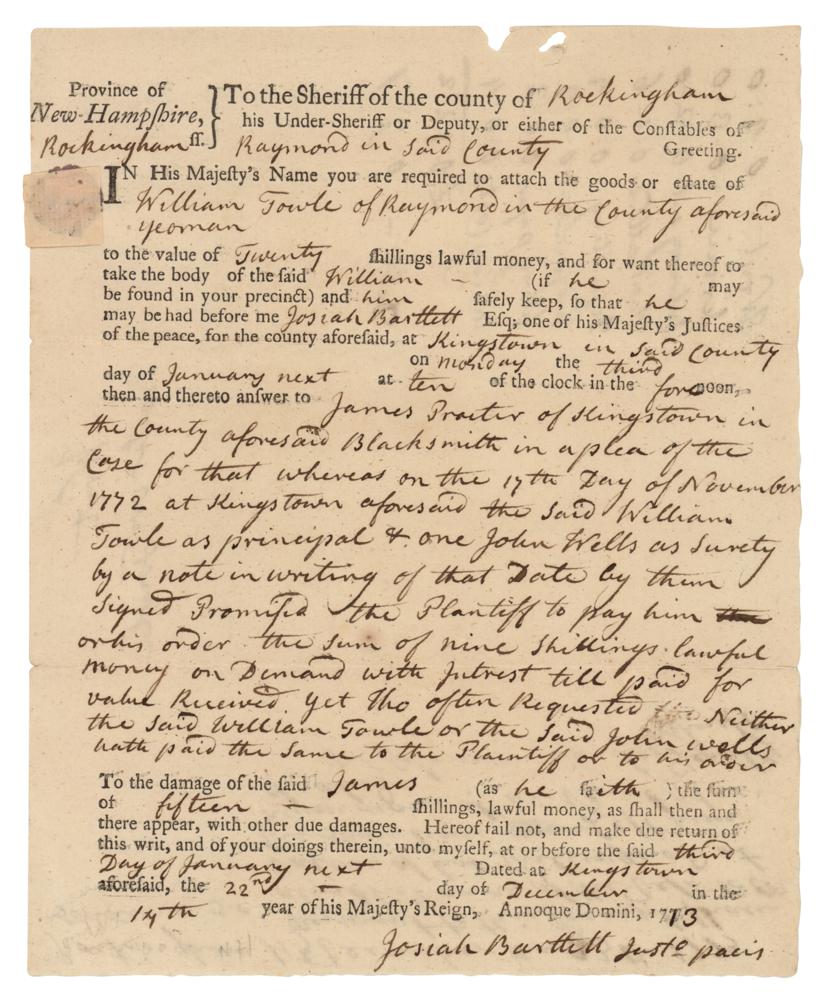 Province of
New-Hampſhire,
Rockingham ſſ.
To the Sheriff of the county of Rockingham
his Under-Sheriff or Deputy, or either of the Conſtables of
Raymond in Said County Greeting.
IN His Majeſty's Name you are required to attach the goods or eſtate of
William Towle of Raymond in the County aforesaid
yeoman
to the value of Twenty ſhillings lawful money, and for want thereof to
take the body of the ſaid William – (if he may
be found in your precinct) and him ſafely keep, ſo that he
may be had before me Josiah Bartlett Eſq; one of his Majeſty's Juſtices
of the peace, for the county aforeſaid, at Kingstown in Said County
on monday the third
day of January next at ten of the clock in the forenoon,
then and thereto anſwer to James Procter of Kingstown in
the County aforesaid Blacksmith in a plea of the
Case for that whereas on the 17th Day of November
1772 at Kingstown aforesaid the Said William
Towle as principal & one John Wells as Surety
by a note in writing of that Date by them
Signed Promised the Plantiff to pay him
or his order the Sum of nine Shillings lawful
money on Demand with Intrest till paid for
value Received. yet tho often Requested Neither
the Said William Towle or the Said John wells
hath paid the Same to the Plaintiff or to his order
To the damage of the ſaid James (as he ſaith ) the ſum
of fifteen – ſhillings, lawful money, as ſhall then and
there appear, with other due damages. Hereof fail not, and make due return of
this writ, and of your doings therein, unto myſelf, at or before the ſaid third
Day of January next Dated at Kingstown
aforeſaid, the 22nd – day of December in the
14th year of his Majeſty's Reign, Annoque Domini, 1773
Josiah Bartlett Justo pacis